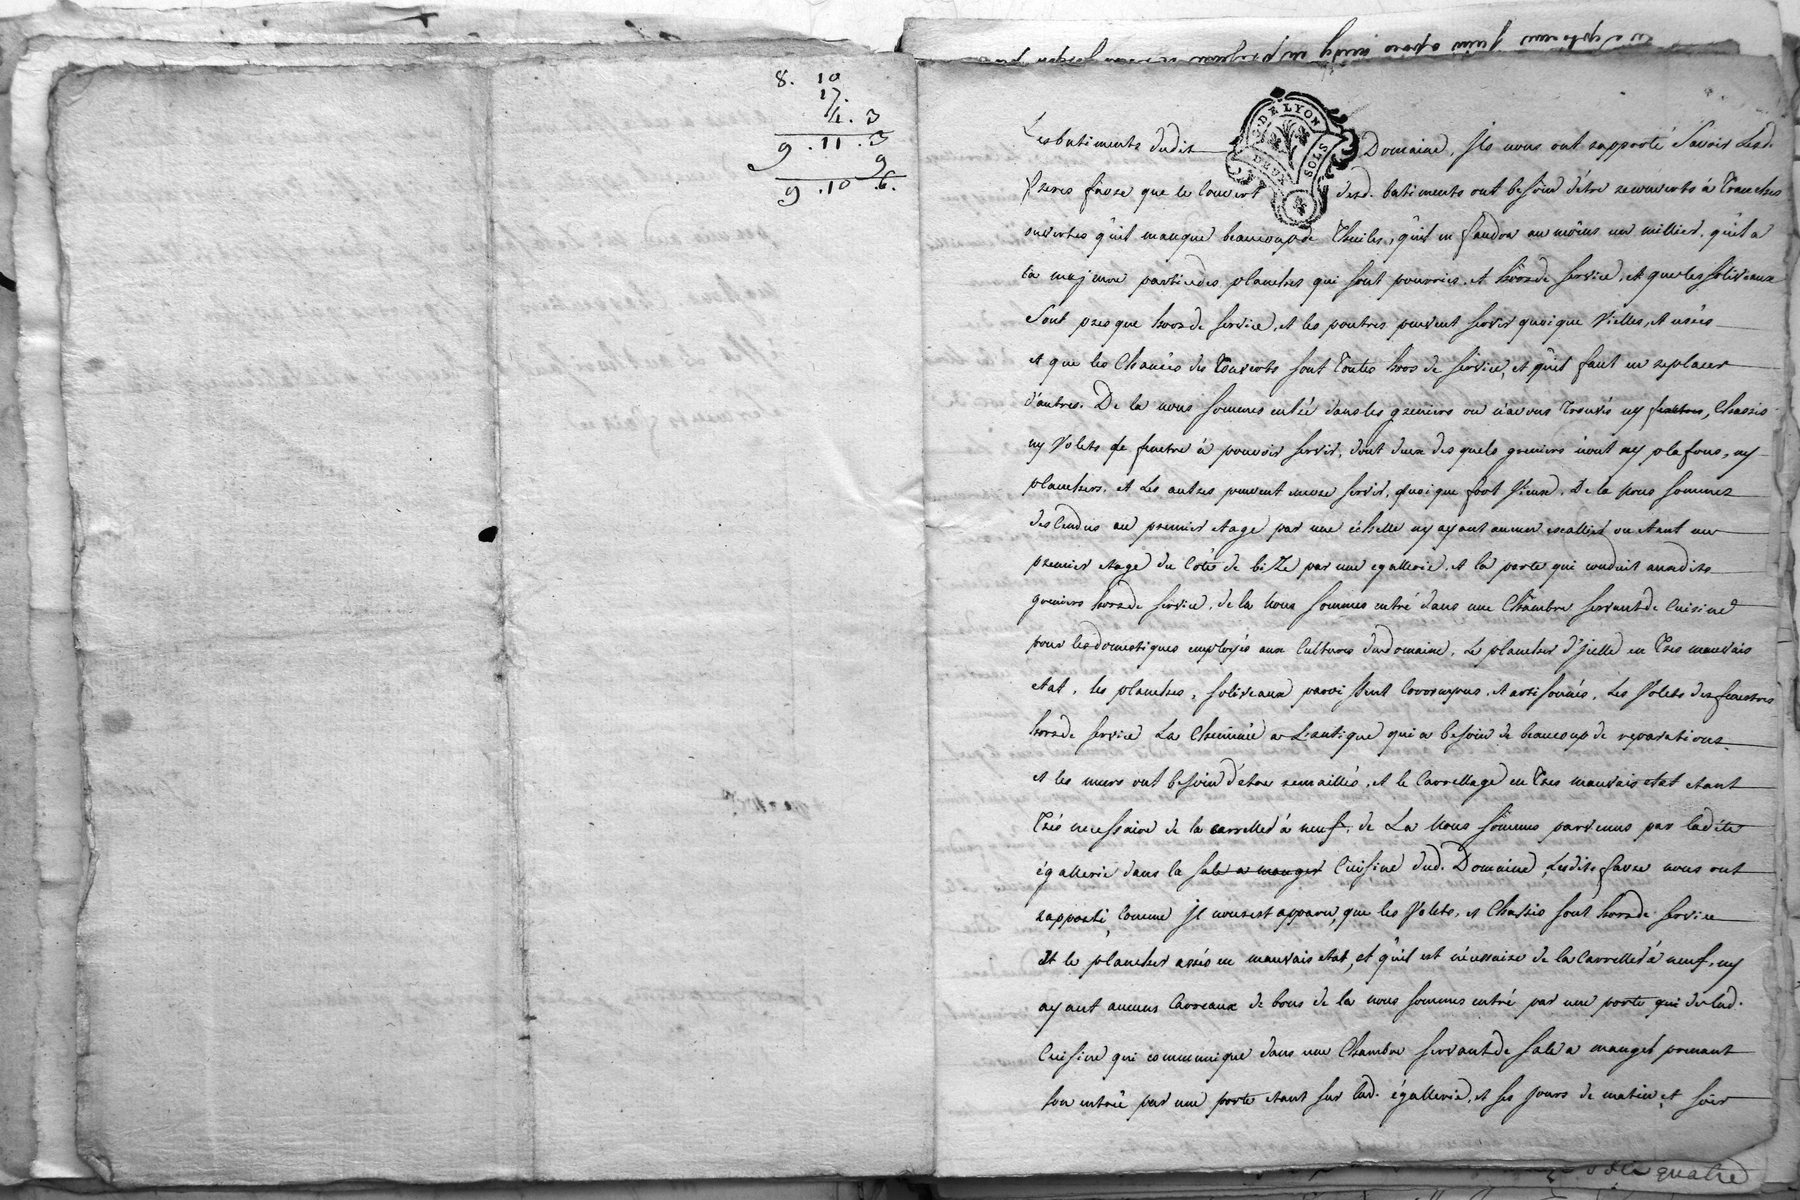 8. 10
17.
4. 3
9. 11. 3
9
9. 10. 6.
G. DE LYON
DEUX SOLS
Les batiments dudit Domaine, Ils nous ont rapporté Savoir Lesd.
freres favre que le Couvert desd. batiments ont besoin d'étre recouverts à Tranches
ouvertes qu'il manque beaucoup de Thuiles, qu'il en faudra au moins un millier. qu'il a
la majeure partie des planches qui sont pourries, et hors de service, et que les soliveaux
Sont presque hors de service, et les poutres peuvent servir quoique Vielles, et usées
et que les Chanées des Couverts sont Toutes hors de service, et qu'il faut en replacer
d'autres. De la nous sommes entré dans les greniers ou n'avons Trouvés ny fenetres, Chassis
ny Volets de fenetre à pouvoir servir, dont deux desquels greniers n'ont ny plafons, ny
planchers, et Les autres peuvent encore servir, quoique fort Vieux. De la nous sommes
descendus au premier etage par une échelle ny ayant aucun escallier ou etant un
premier etage du Côté de biZe par une egallerie, et la porte qui conduit auxdits
greniers hors de service. de la Nous sommes entré dans une Chambre servant de Cuisine
pour les domestiques employés aux Cultures du domaine, Le plancher d'jcelle en Tres mauvais
etat, les planches, soliveaux paroissent Corrompus, et artisonnés, Les Volets des fenetres
hors de service La Cheminée a L'antique qui a besoin de beaucoup de reparations
et les murs ont besoin d'étre remaillés, et le Carrellage en Tres mauvais etat etant
Trés necessaire de la carreller à neuf, de La Nous sommes parvenus par ladite
égallerie dans la sale a manger Cuisine dud. Domaine, Lesdits favre nous ont
rapporté, Comme jl nous est apparu, que les Volets, et Chassis sont hors de service
Et le plancher assés en mauvais etat, et qu'il est nécessaire de la Carreller à neuf, ny
ayant aucuns Carreaux de bons de la nous sommes entré par une porte qui de lad.
Cuisine qui communique dans une Chambre servant de sale a manger prenant
son entrée par une porte etant sur lad. égallerie, et ses jours de matin, et soir
quatre